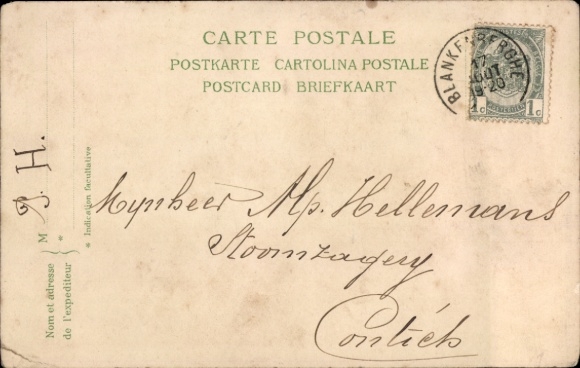 CARTE POSTALE
POSTKARTE CARTOLINA POSTALE
POSTCARD BRIEFKAART
BLANKENBERGHE
17
AOUT
19-20
1c 1c
Mynheer Alp. Hellemans
Stoomzagery
Contich
Nom et adresse
de l'expediteur
M
*
* Indication facultative
J. H.